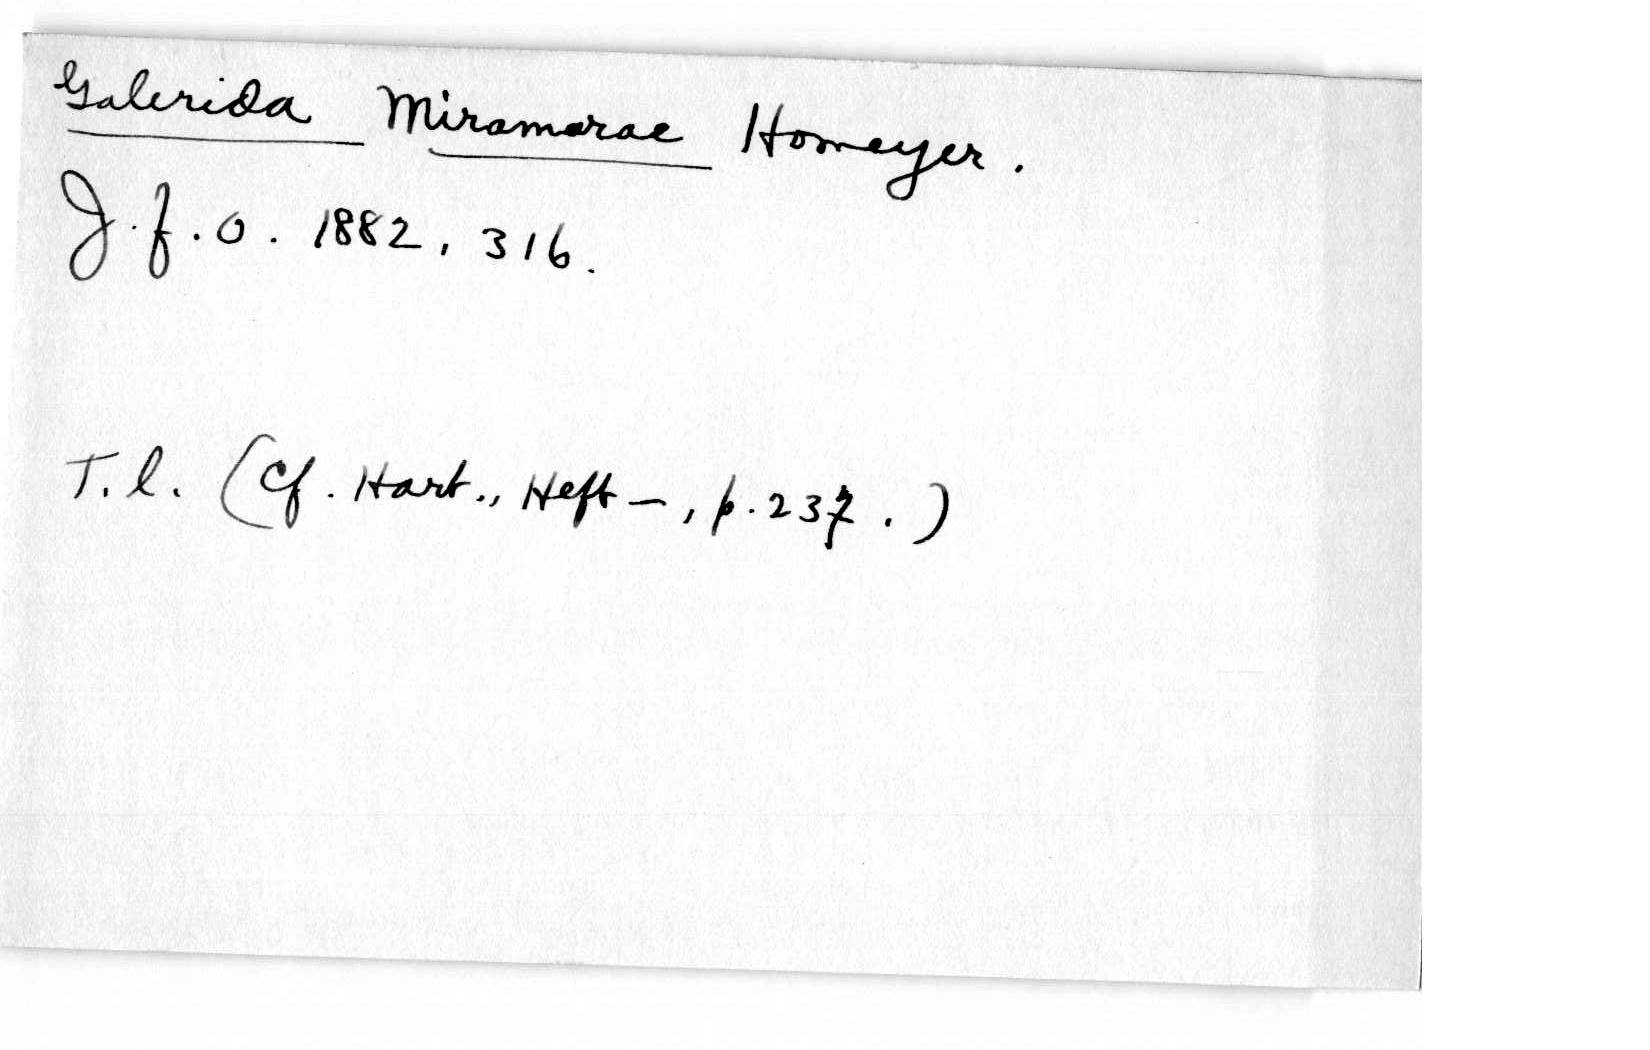 Galerida Miramarae Homeyer.
J. f. o. 1882, 316.
T. l. (Cf. Hart., Heft —, p. 237.)